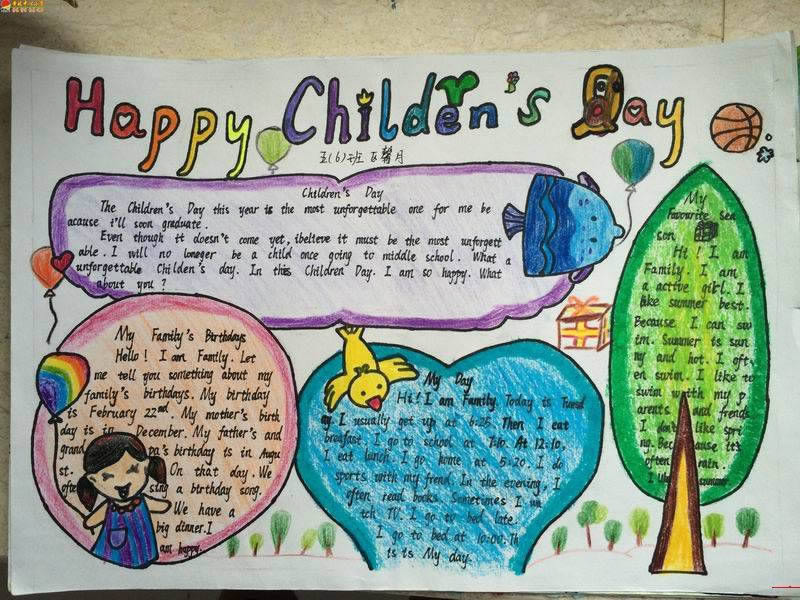 Happy Children's Day
五(6)班
月
Children's Day
The Children's Day this year is the most unforgettable one for me be
acause i'll soon graduate.
Even though it doesn't come yet, ibelieve it must be the most unforgett
able. I will no loneger be a child once going to middle school. What a
unforgettable Childen's day. In this Children Day. I am so happy. What
about you?
My
Favourite Sea
son
Hi! I am
Family. I am
a active girl. I
like summer best.
Because I can sw
im. Summer is sun
ny and hot. I oft
en swim. I like to
swim with my p
arents and friends
I don't like spri
ng. Because it's
often rain.
I like summer.
My Family's Birthdays
Hello! I am Family. Let
me tell you something about my
family's birthdays. My birthday
is February 22nd. My mother's birth
day is in December. My father's and
grandpa's birthday is in Augu
st. On that day. We
often sing a birthday song.
We have a
big dinner. I
am happy.
My Day
Hi! I am Family. Today is Tuesd
ay. I usually get up at 6:25. Then I eat
breafast. I go to school at 7:10. At 12:10,
I eat lunch. I go home at 5:20. I do
sports with my frend. In the evening, I
often read books. Sometimes I wa
tch TV. I go to bed late.
I go to bed at 10:00. Th
is is My day.